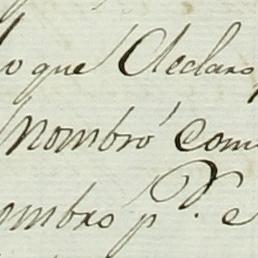 lo que Declaro
Nombró com
ombro p.r e